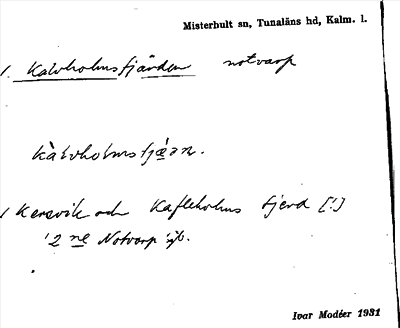 Misterhult sn, Tunaläns hd, Kalm. l.
1. Kalvholmsfjärden notvarp
kàlvholmsfjæ̀ɑn.
1 Kersvik och Kafleholms fjerd [!]
2 ne Notvarp
Ivar Modéer 1931